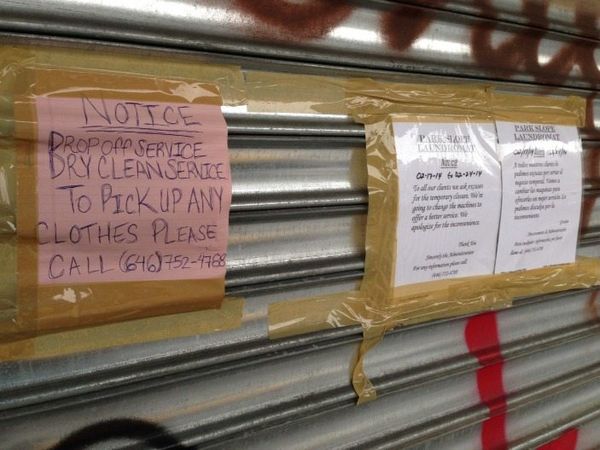 NOTICE
DROP OFF SERVICE
DRY CLEAN SERVICE
TO PICK UP ANY
CLOTHES PLEASE
CALL (646) 752-4788
PARK SLOPE
LAUNDROMAT
Notice
02-17-14 to 02-24-14
To all our clients we ask excuses
for the temporary closure. We're
going to change the machines to
offer a better service. We
apologize for the inconvenience.
Thank You
Sincerely the Administration
For any information please call
PARK SLOPE
LAUNDROMAT
A todos nuestros clientes les
pedimos excusas por cerrar el
negocio temporal. Vamos a
cambiar las maquinas para
ofrecerles un mejor servicio. Les
pedimos disculpa por la
inconveniencia
Gracias